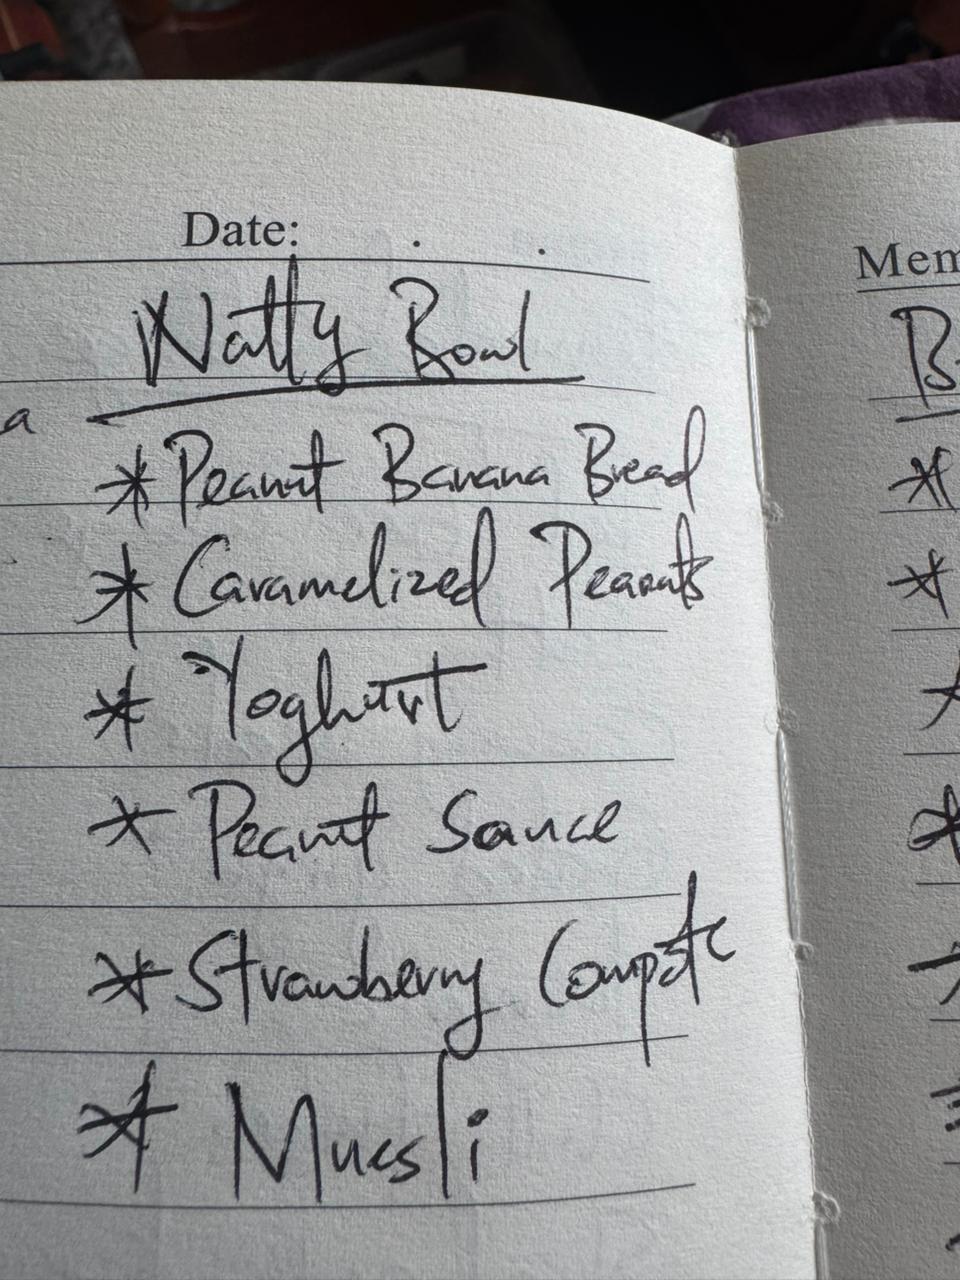 Date: . .
Natty Bowl
a
* Peanut Banana Bread
* Caramelized Peanuts
* Yoghurt
* Peanut Sauce
* Strawberry Compote
* Muesli